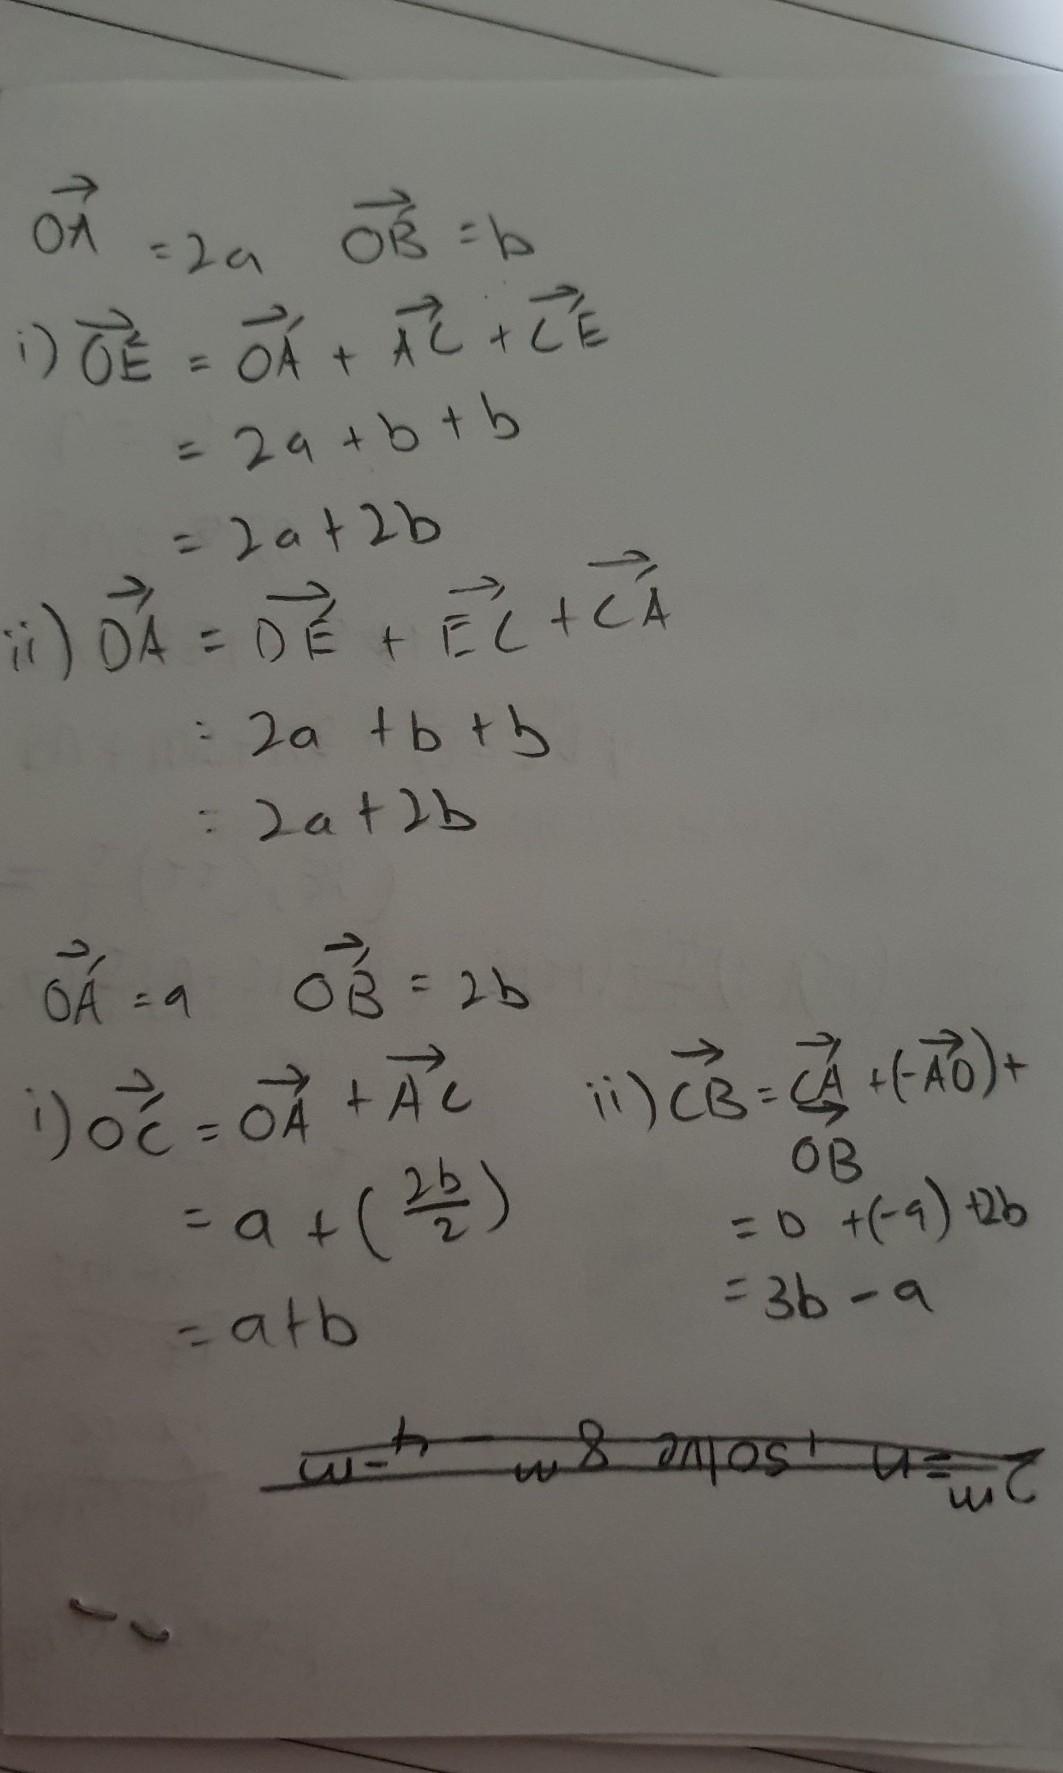 OA = 2a OB = b
i) OE = OA + AC + CE
= 2a + b + b
= 2a + 2b
ii) DA = DE + EC + CA
= 2a + b + b
= 2a + 2b
OA = a OB = 2b
i) OC = OA + AC
= a + (2b/2)
= a+b
ii) CB = CA + (-AO) +
OB
= 0 + (-a) + 2b
= 3b - a
2^m = n, solve 8^m - 4^-m